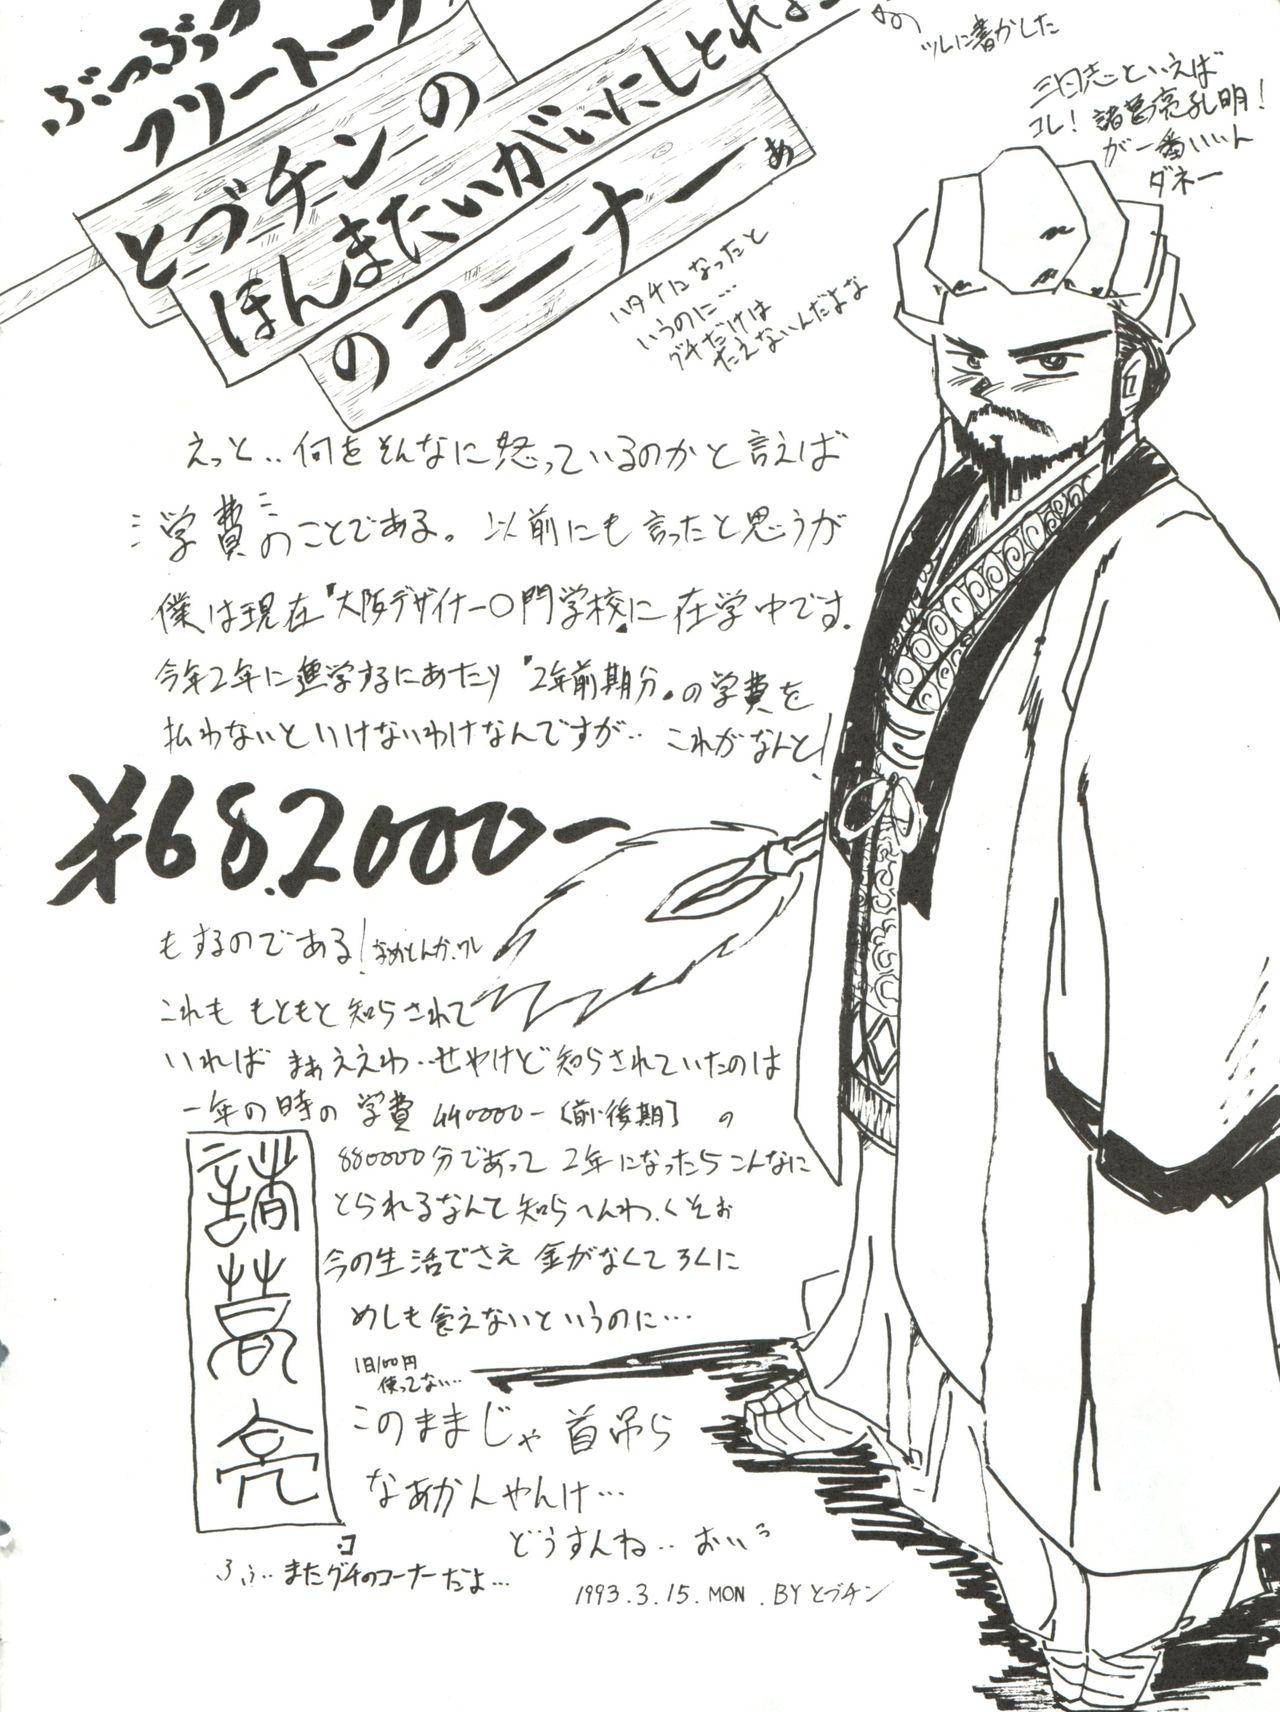 ぶつぶつ
フリートーク
とブチンの
ほんまたいがいにしとれよー
のコーナーぁ
ツレに書かした
三国志といえば
コレ！諸葛亮孔明！
が一番いいん
ダネー
ハタチになったと
いうのに…
グチだけは
たえないんだよな
えっと‥何をそんなに怒っているのかと言えば
学費のことである。以前にも言ったと思うが
僕は現在『大阪デザイナー〇門学校』に在学中です.
今年2年に進学するにあたり『2年前期分』の学費を
払わないといけないわけなんですが‥これがなんと!
¥682000ー
もするのである!なめとんか.ワレ
これももともと知らされて
いればまぁええわ‥せやけど知らされていたのは
一年の時の学費440000ー〔前・後期〕の
880000分であって2年になったらこんなに
とられるなんて知らへんわ.くそぉ
今の生活でさえ金がなくてろくに
めしも食えないというのに…
1日100円
使ってない…
このままじゃ首吊ら
なあかんやんけ…
どうすんね‥おいぅ
諸葛亮
ふぅ‥またグチのコーナーだよ…
1993.3.15.MON.BYとブチン